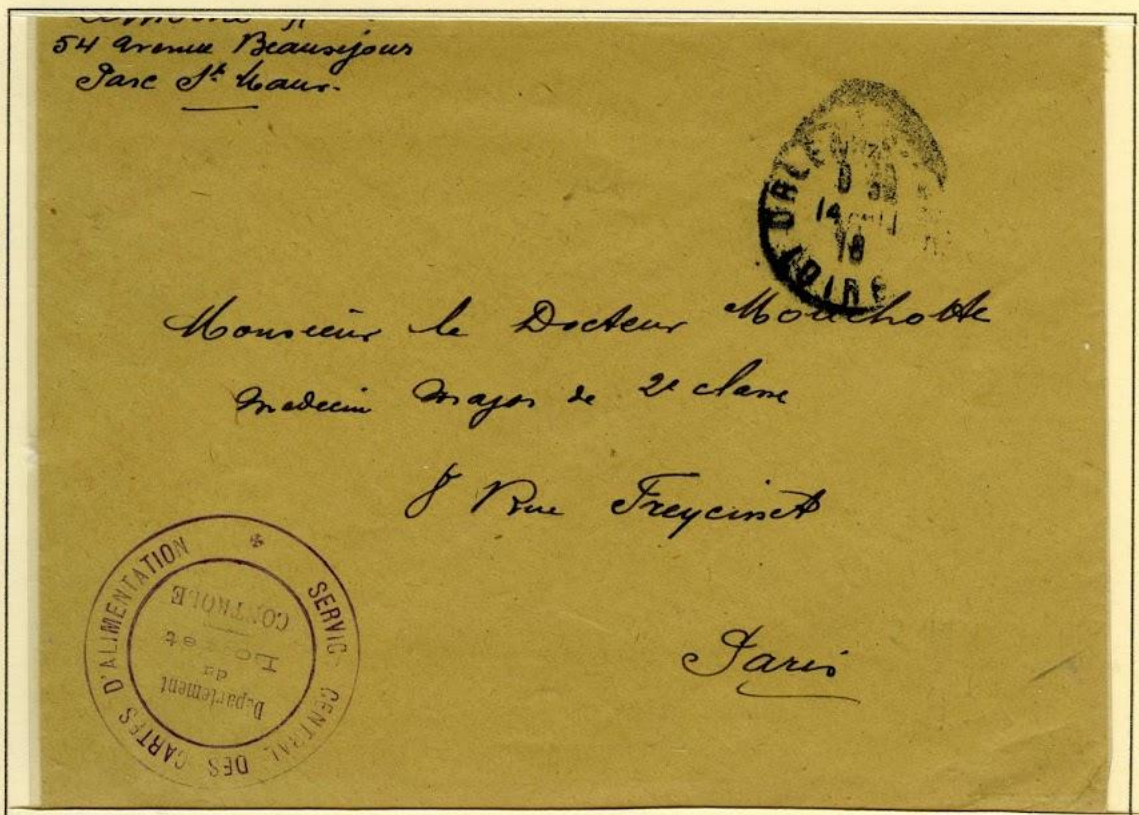 54 Avenue Beauséjour
Parc St Maur.
ORLEANS
14
18
LOIRET
Monsieur le Docteur Mouchotte
Medecin Major de 2e classe
8 Rue Freycinet
Paris
SERVIC CENTRAL DES CARTES D'ALIMENTATION
Département
du
Loiret
CONTROLE